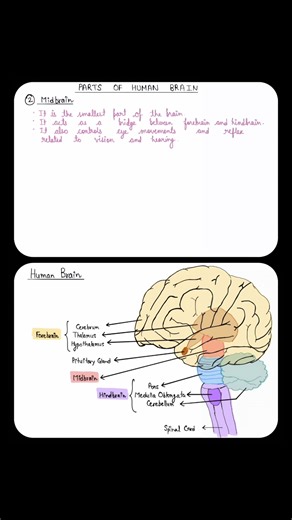 PARTS OF HUMAN BRAIN
② Midbrain
· It is the smallest part of the brain
· It acts as a bridge between forebrain and hindbrain.
· It also controls eye movements and reflex
related to vision and hearing
Human Brain
Cerebrum
Forebrain
Thalamus
Hypothalamus
Pituitary Gland
Midbrain
Pons
Hindbrain
Medulla Oblongata
Cerebellum
Spinal Cord